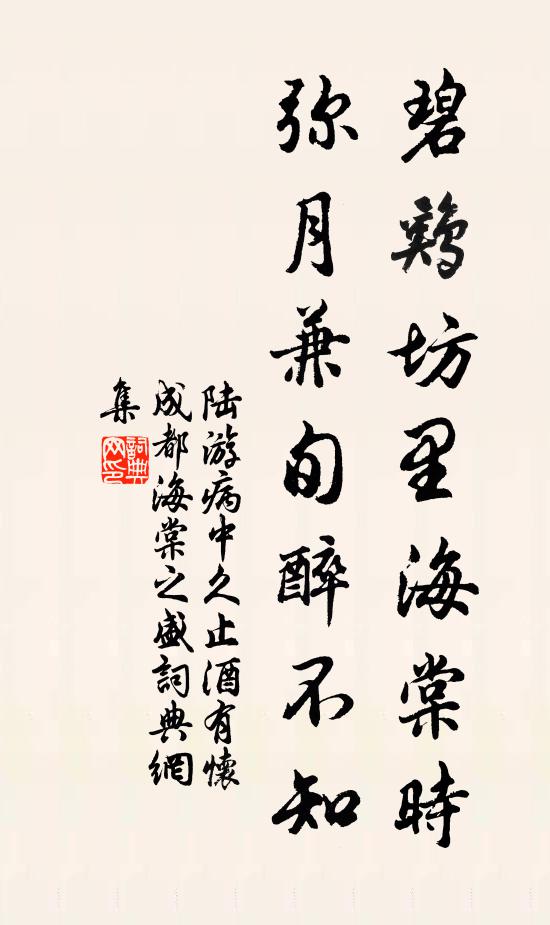 碧鷄坊里海棠時
弥月兼旬醉不知
陆游病中久止酒有懷
成都海棠之盛詞典網
集
詞典
网印